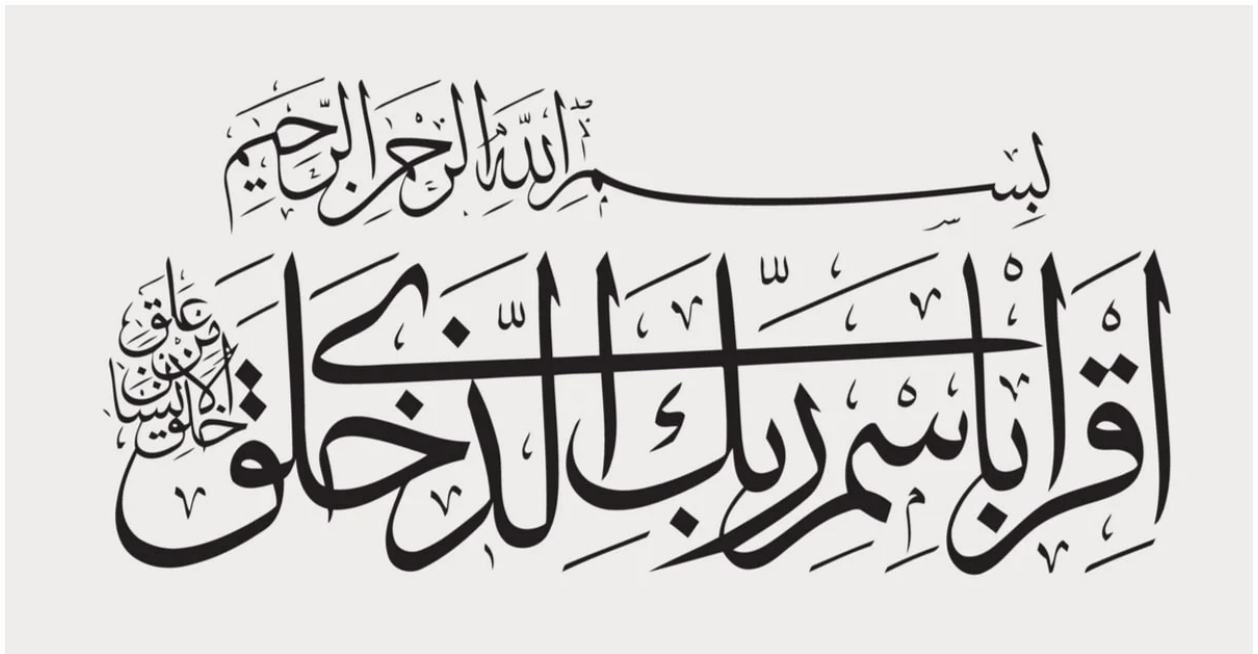 بِسْمِ اللَّهِ الرَّحْمَٰنِ الرَّحِيمِ
اقْرَأْ بِاسْمِ رَبِّكَ الَّذِي خَلَقَ
خَلَقَ الْإِنْسَانَ مِنْ عَلَقٍ